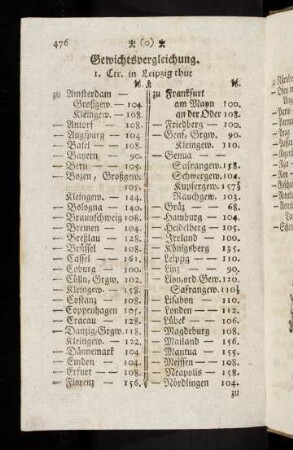 476 ✠ (o) ✠
Gewichtsvergleichung.
1. Ctr. in Leipzig thut
℔.
zu Amsterdam —
Großgew. — 104.
Kleingew. — 108.
— Antorf — 108.
— Augspurg — 104.
— Basel — 108.
— Bayern — 90.
— Bern — 105.
— Botzen, Großgew.
105.
Kleingew. — 144.
— Bologna — 140.
— Braunschweig 108.
— Bremen — 104.
— Breßlau — 128.
— Brüssel — 108.
— Cassel — 161.
— Coburg — 100.
— Cölln, Grgw. 102.
— Kleingew. — 158.
— Costanz — 108.
— Coppenhagen 105.
— Cracau — 128.
— Danzig, Grgw. 118.
Kleingew. — 122.
— Dännemark 104.
— Emden — 104.
— Erfurt — 108.
— Florenz — 156.
℔.
zu Frankfurt
am Mayn 100.
an der Oder 108.
— Friedberg — 100.
— Genf, Grgw. 90.
Kleingew. 110.
— Genua —
Safrangew. 158.
Schwergew. 104.
Kupfergew. 157½
Rauchgew. 103.
— Grätz — 68.
— Hamburg — 104.
— Heidelberg — 105.
— Irrland — 100.
— Königsberg 135.
— Leipzig — 110.
— Linz — 90.
— Lion, ord. Gew. 120.
Safrangew. 110½
— Lisabon — 110.
— Londen — 112.
— Lübek — 106.
— Magdeburg 108.
— Mailand — 156.
— Mantua — 155.
— Meissen — 108.
— Neapolis — 158.
— Nördlingen 104.
zu